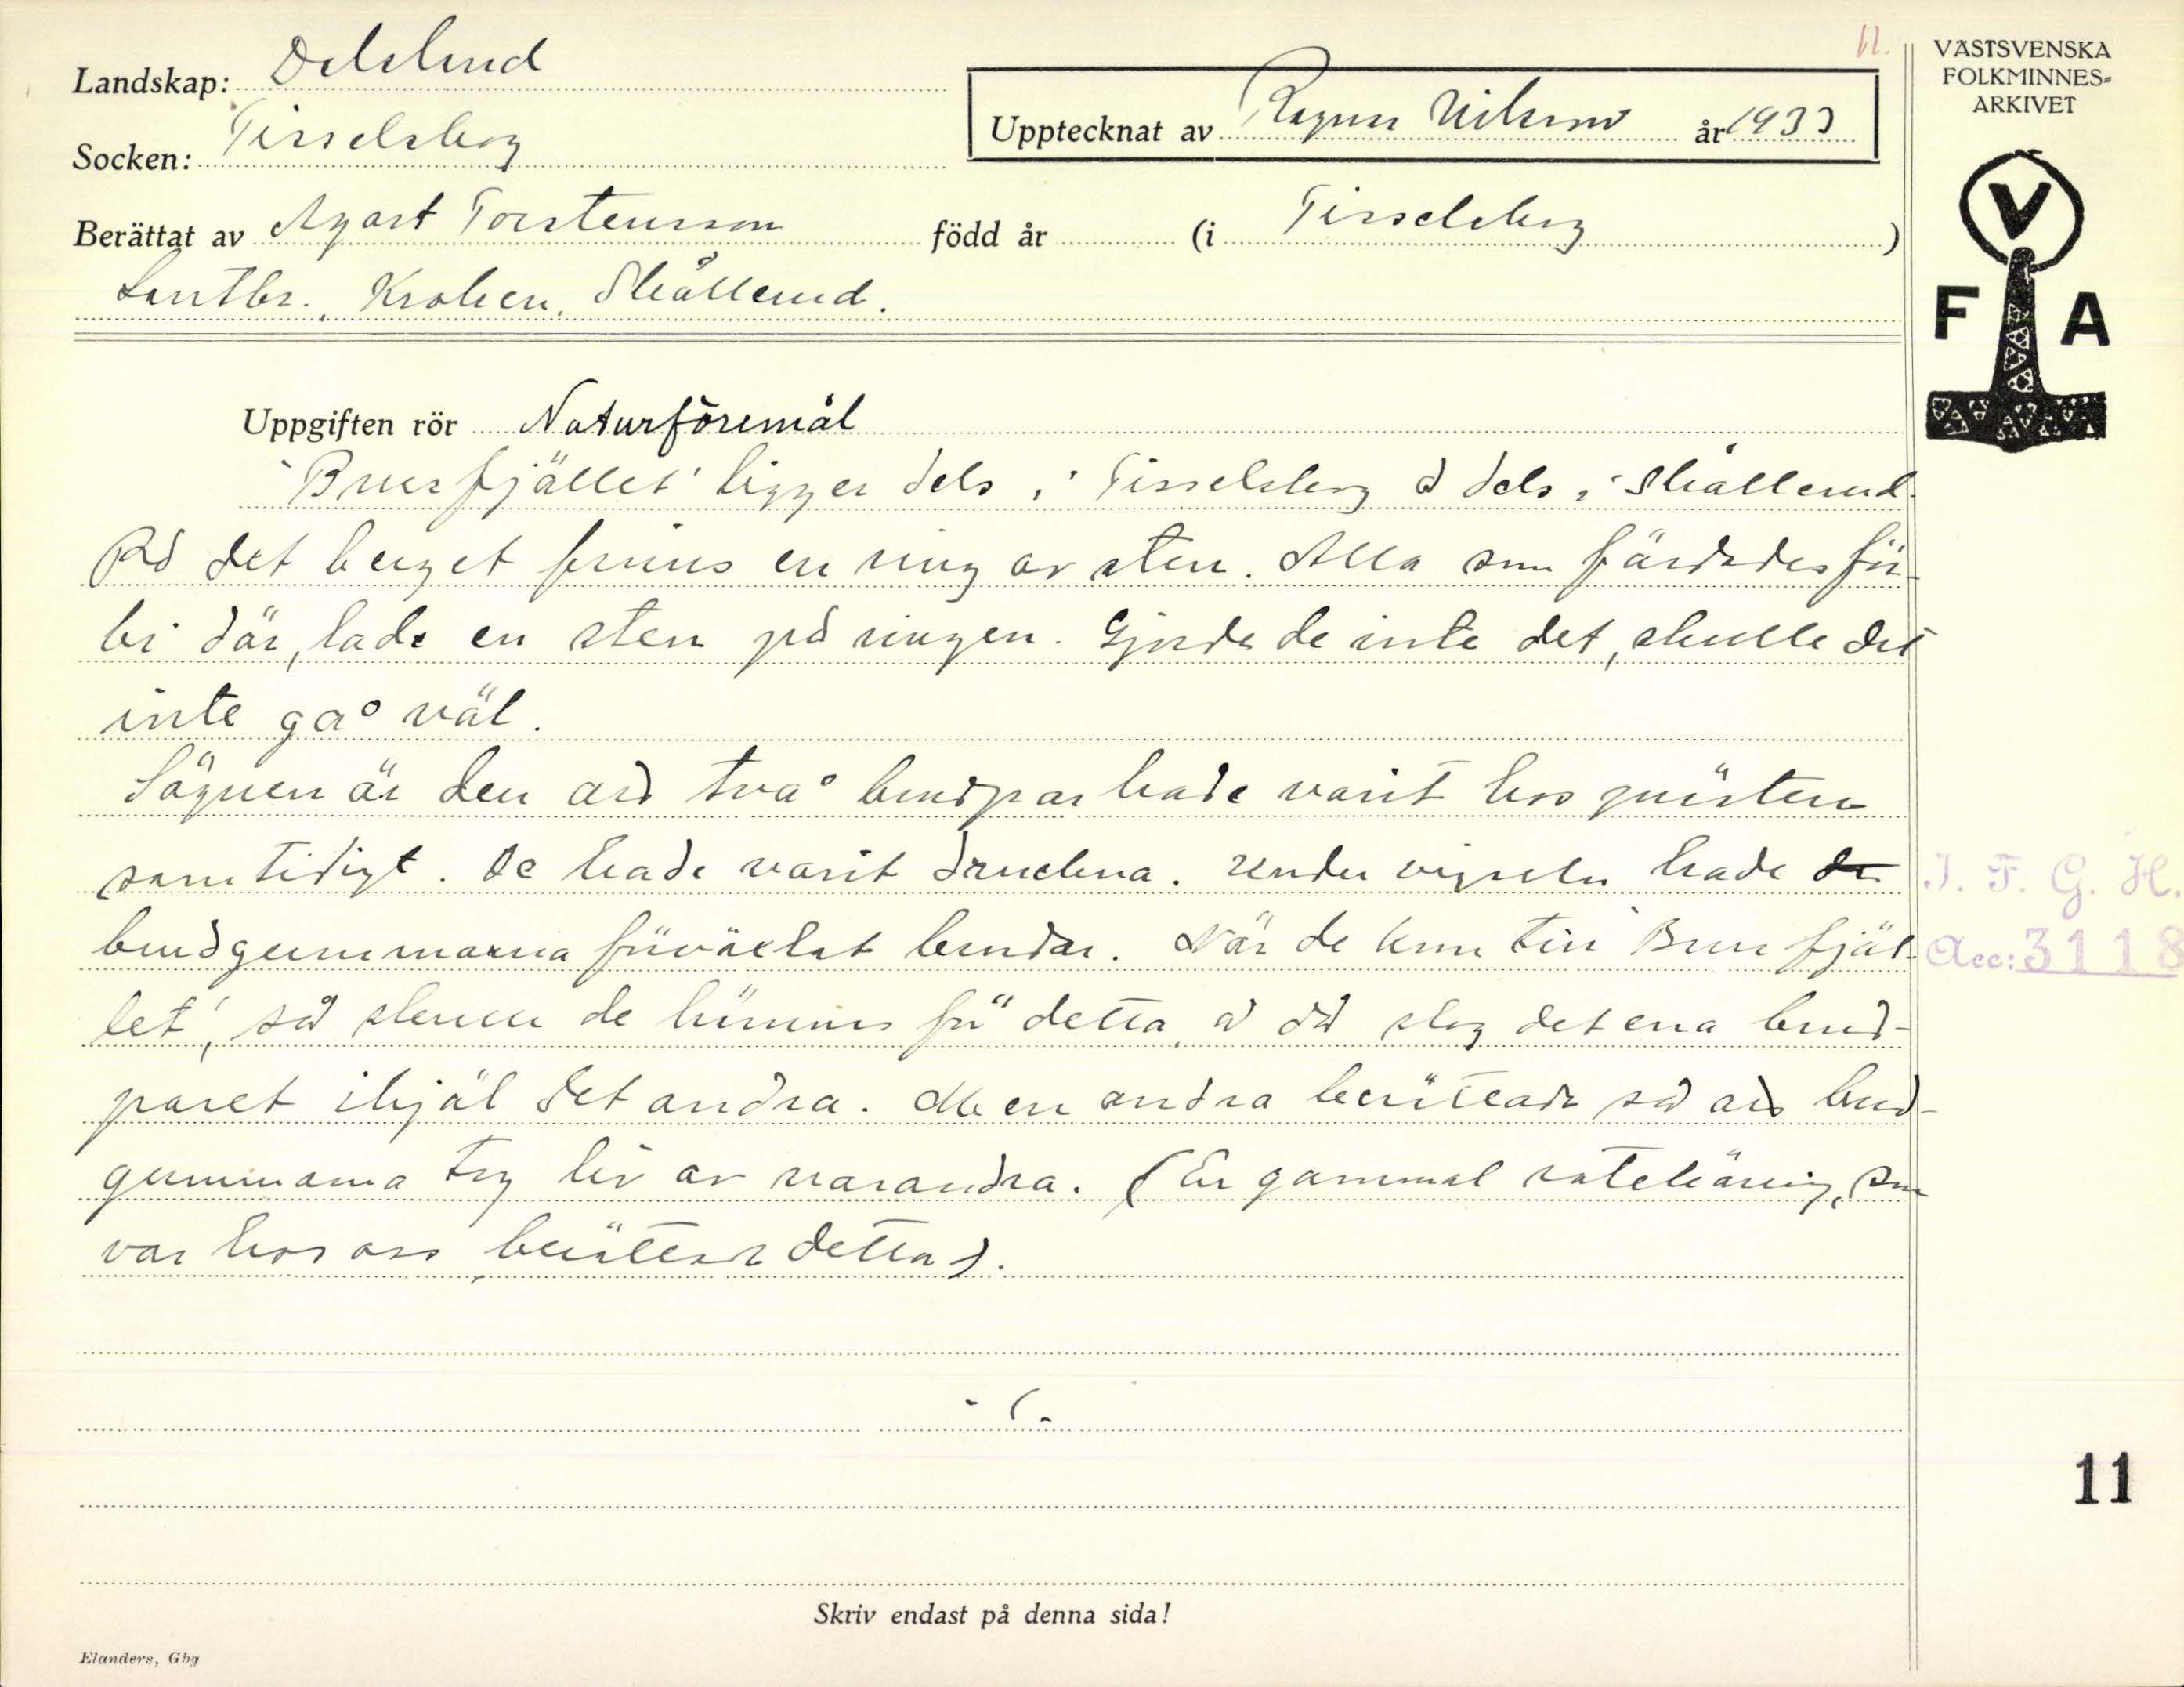 Landskap: Dalsland
Socken: Tisselskog
Upptecknat av Ragnar Nilsson år 1933
Berättat av August Torstensson född år (i Tisselskog)
Lantbr., Kroken, Skållerud.
VÄSTSVENSKA
FOLKMINNES-
ARKIVET
V
F A
Uppgiften rör Naturföremål
"Brurfjället" ligger dels i Tisselskog å dels i Skållerud.
På det berget finns en ring av sten. Alla som färdades för-
bi där, lade en sten på ringen. Gjorde de inte det, skulle det
inte gå väl.
Sägnen är den att två brudpar hade varit hos prästen
samtidigt. De hade varit druckna. Under vigseln hade de
brudgummarna förväxlat brudar. När de kom till "Brurfjäl-
let", så skulle de hämnas för detta, å då slog det ena brud-
paret ihjäl det andra. Men andra berättade så att brud-
gummarna tog liv av varandra. (En gammal rotehäring, som
var hos oss berättade detta).
I. F. G. H.
Acc: 3118
11
Skriv endast på denna sida!
Elanders, Gbg